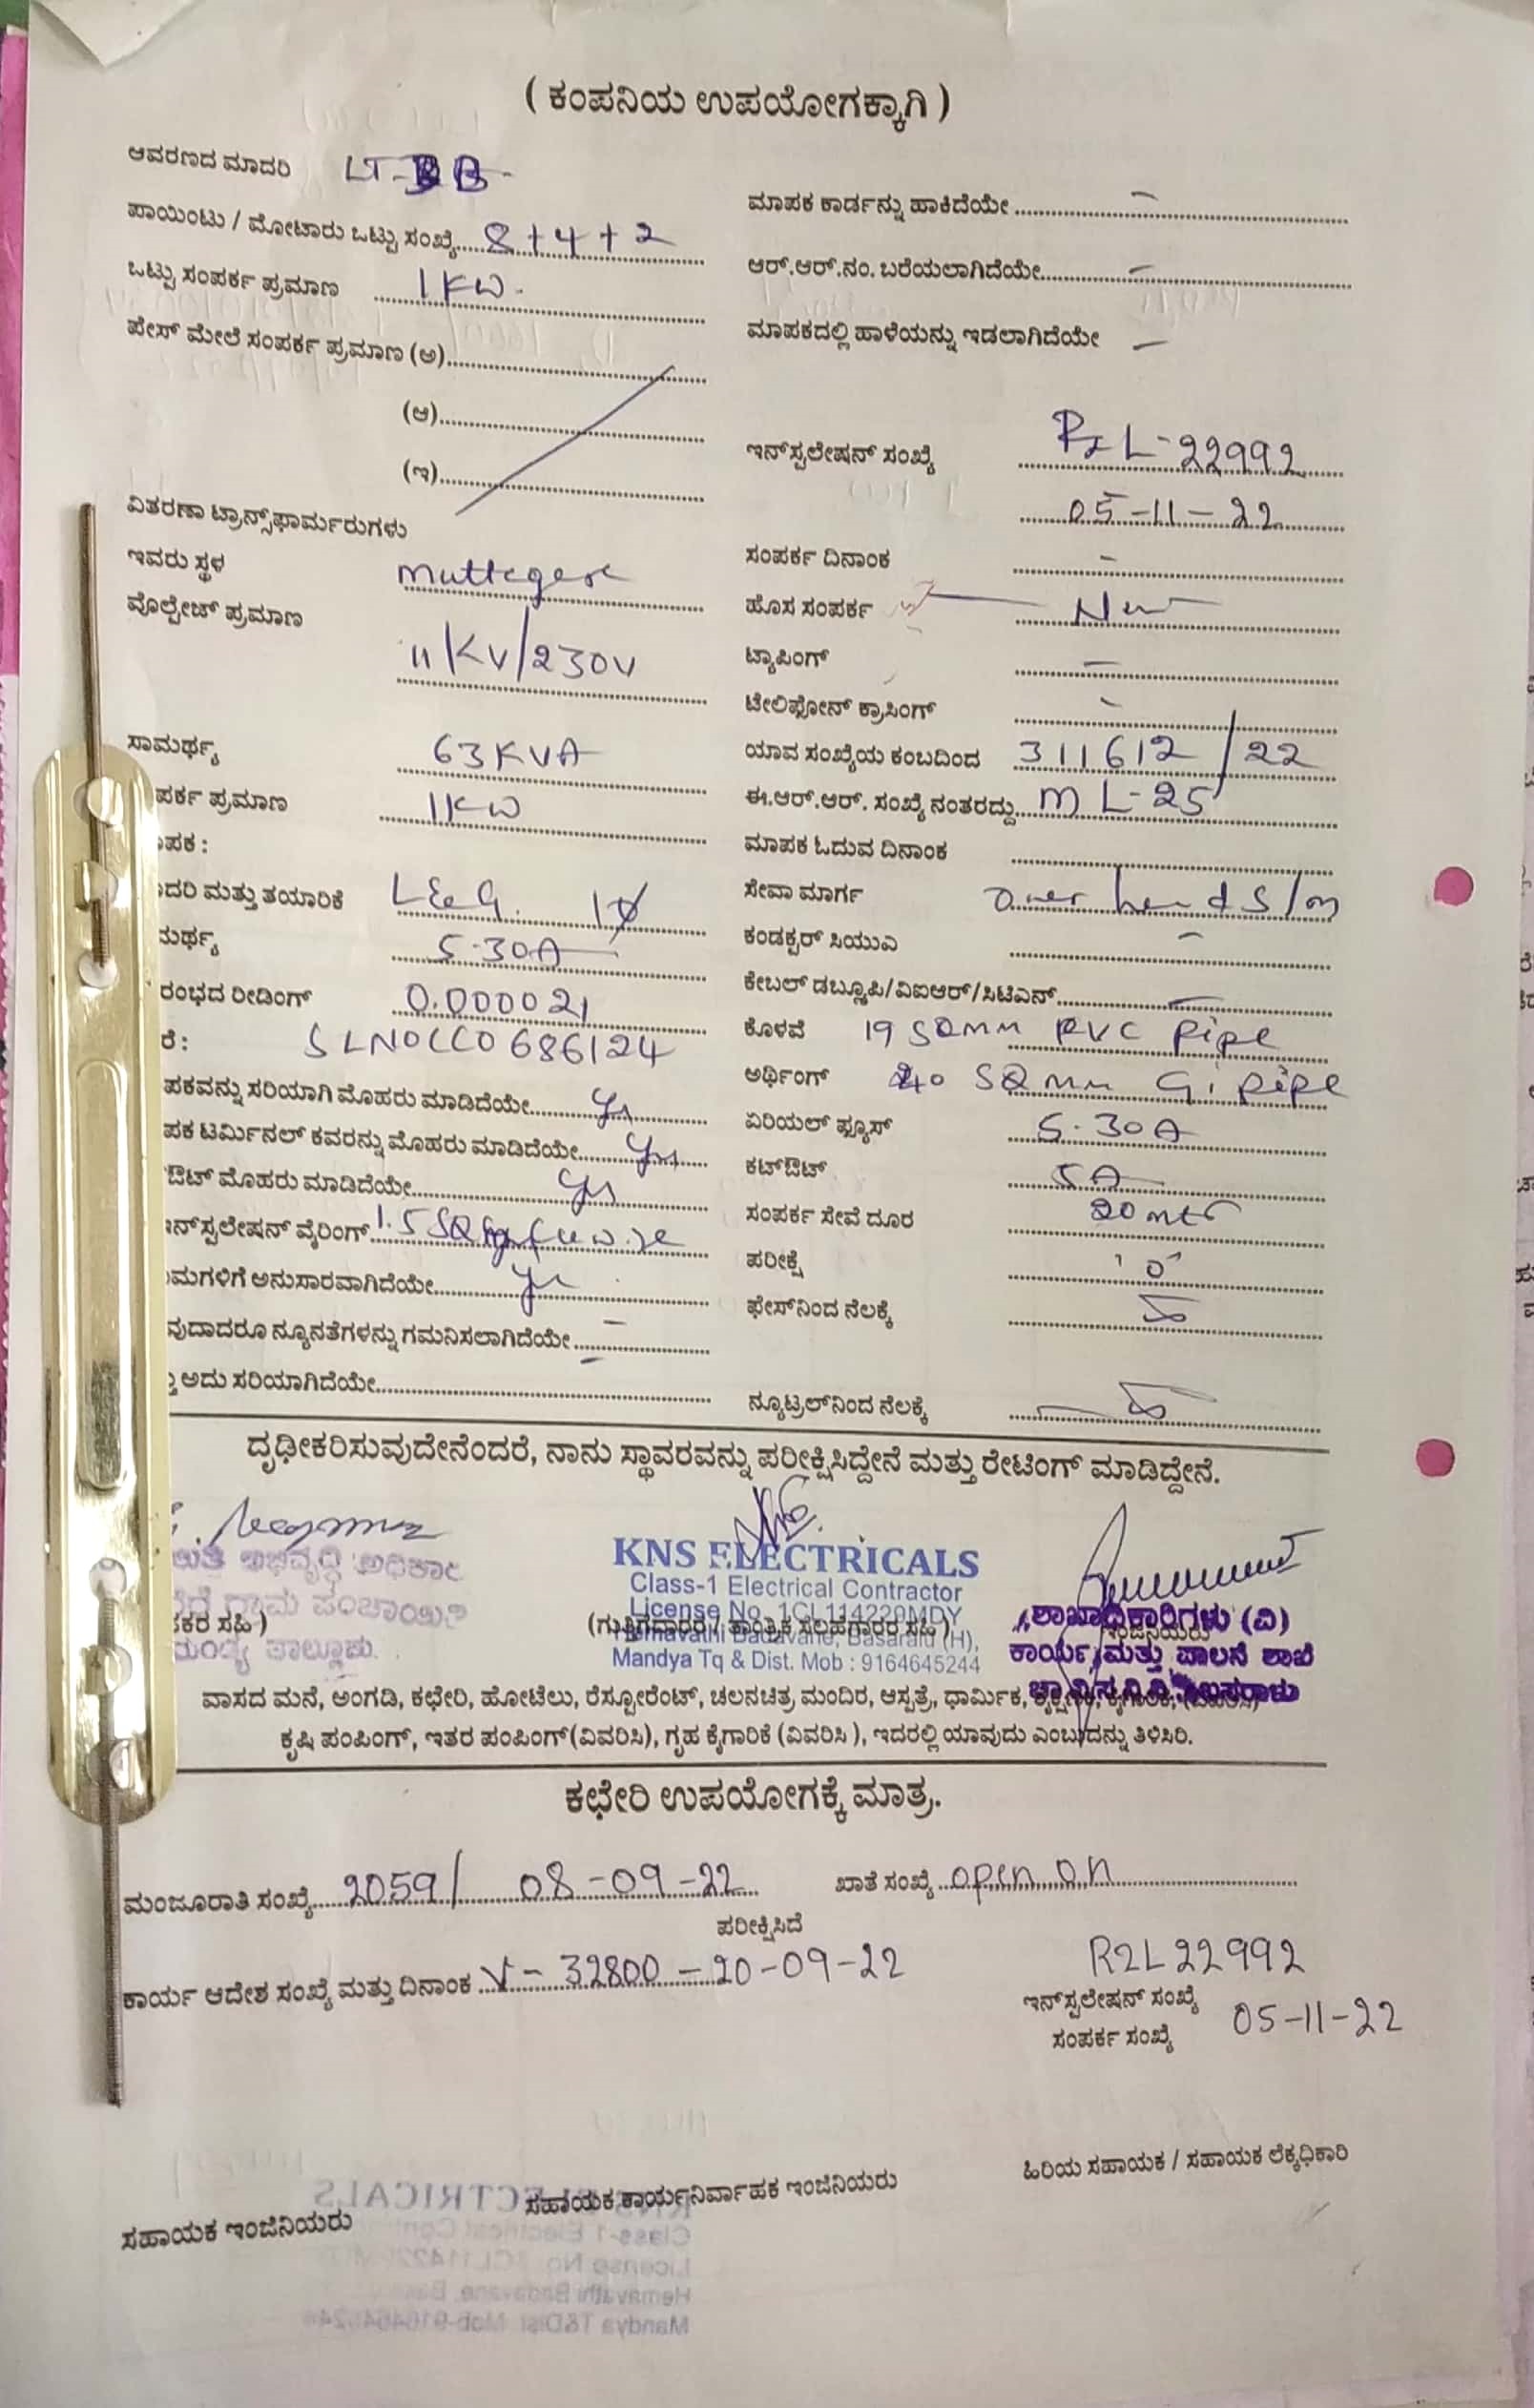 ( ಕಂಪನಿಯ ಉಪಯೋಗಕ್ಕಾಗಿ )
ಆವರಣದ ಮಾದರಿ LT-
ಪಾಯಿಂಟು / ಮೋಟಾರು ಒಟ್ಟು ಸಂಖ್ಯೆ 8+4+2
ಒಟ್ಟು ಸಂಪರ್ಕ ಪ್ರಮಾಣ 1KW
ಪೇಸ್ ಮೇಲೆ ಸಂಪರ್ಕ ಪ್ರಮಾಣ (ಅ)
(ಆ)
(ಇ)
ವಿತರಣಾ ಟ್ರಾನ್ಸ್‌ಫಾರ್ಮರುಗಳು
ಇವರು ಸ್ಥಳ muttegere
ವೊಲ್ಟೇಜ್ ಪ್ರಮಾಣ
11KV/230V
ಸಾಮರ್ಥ್ಯ 63KVA
ಪರ್ಕ ಪ್ರಮಾಣ 1KW
ಪಕ :
ದರಿ ಮತ್ತು ತಯಾರಿಕೆ L&G. 1Ø
ಮರ್ಥ್ಯ 5-30A
ರಂಭದ ರೀಡಿಂಗ್ 0.000021
ರೆ : SLNOCC0686124
ಪಕವನ್ನು ಸರಿಯಾಗಿ ಮೊಹರು ಮಾಡಿದೆಯೇ Yes
ಪಕ ಟರ್ಮಿನಲ್ ಕವರನ್ನು ಮೊಹರು ಮಾಡಿದೆಯೇ Yes
ಔಟ್ ಮೊಹರು ಮಾಡಿದೆಯೇ Yes
ಇನ್‌ಸ್ಟಲೇಷನ್ ವೈರಿಂಗ್ 1.5 SQ
ಮಗಳಿಗೆ ಅನುಸಾರವಾಗಿದೆಯೇ Yes
ವುದಾದರೂ ನ್ಯೂನತೆಗಳನ್ನು ಗಮನಿಸಲಾಗಿದೆಯೇ -
ಅದು ಸರಿಯಾಗಿದೆಯೇ -
ಮಾಪಕ ಕಾರ್ಡನ್ನು ಹಾಕಿದೆಯೇ -
ಆರ್.ಆರ್.ನಂ. ಬರೆಯಲಾಗಿದೆಯೇ -
ಮಾಪಕದಲ್ಲಿ ಹಾಳೆಯನ್ನು ಇಡಲಾಗಿದೆಯೇ -
ಇನ್‌ಸ್ಟಲೇಷನ್ ಸಂಖ್ಯೆ RZL-22992
05-11-22
ಸಂಪರ್ಕ ದಿನಾಂಕ -
ಹೊಸ ಸಂಪರ್ಕ New
ಟ್ಯಾಪಿಂಗ್ -
ಟೇಲಿಫೋನ್ ಕ್ರಾಸಿಂಗ್ -
ಯಾವ ಸಂಖ್ಯೆಯ ಕಂಬದಿಂದ 311612/22
ಈ.ಆರ್.ಆರ್. ಸಂಖ್ಯೆ ನಂತರದ್ದು mL-25
ಮಾಪಕ ಓದುವ ದಿನಾಂಕ
ಸೇವಾ ಮಾರ್ಗ Over head S/m
ಕಂಡಕ್ಟರ್ ಸಿಯುಎ -
ಕೇಬಲ್ ಡಬ್ಲೂಪಿ/ವಿಐಆರ್/ಸಿಟಿಎಸ್ -
ಕೊಳವೆ 19 SQmm PVC Pipe
ಅರ್ಥಿಂಗ್ 40 SQmm G.I pipe
ಏರಿಯಲ್ ಫ್ಯೂಸ್ 5-30A
ಕಟ್‌ಔಟ್ 5A
ಸಂಪರ್ಕ ಸೇವೆ ದೂರ 20mtr
ಪರೀಕ್ಷೆ '0'
ಫೇಸ್‌ನಿಂದ ನೆಲಕ್ಕೆ
ನ್ಯೂಟ್ರಲ್‌ನಿಂದ ನೆಲಕ್ಕೆ
ದೃಢೀಕರಿಸುವುದೇನೆಂದರೆ, ನಾನು ಸ್ಥಾವರವನ್ನು ಪರೀಕ್ಷಿಸಿದ್ದೇನೆ ಮತ್ತು ರೇಟಿಂಗ್ ಮಾಡಿದ್ದೇನೆ.
ಅಭಿವೃದ್ಧಿ ಅಧಿಕಾರಿ
ಗ್ರಾಮ ಪಂಚಾಯಿತಿ
ಮಂಡ್ಯ ತಾಲ್ಲೂಕು.
ಕರ ಸಹಿ )
KNS ELECTRICALS
Class-1 Electrical Contractor
License No. 1CL114220MDY
Hemavathi Badavane, Basaralu (H),
Mandya Tq & Dist. Mob : 9164645244
(ಗುತ್ತಿಗೆದಾರರ / ತಾಂತ್ರಿಕ ಸಲಹೆಗಾರರ ಸಹಿ)
ಶಾಖಾಧಿಕಾರಿಗಳು (ವಿ)
ಇಂಜಿನಿಯರು
ಕಾರ್ಯ ಮತ್ತು ಪಾಲನೆ ಶಾಖೆ
ಚಾ.ವಿ.ಸ.ನಿ.ನಿ. ಬಸರಾಳು
ವಾಸದ ಮನೆ, ಅಂಗಡಿ, ಕಛೇರಿ, ಹೋಟೆಲು, ರೆಸ್ಟೋರೆಂಟ್, ಚಲನಚಿತ್ರ ಮಂದಿರ, ಆಸ್ಪತ್ರೆ, ಧಾರ್ಮಿಕ, ಶೈಕ್ಷಣಿಕ, ಕೈಗಾರಿಕೆ, (ವಿವರಿಸಿ)
ಕೃಷಿ ಪಂಪಿಂಗ್, ಇತರ ಪಂಪಿಂಗ್(ವಿವರಿಸಿ), ಗೃಹ ಕೈಗಾರಿಕೆ (ವಿವರಿಸಿ ), ಇದರಲ್ಲಿ ಯಾವುದು ಎಂಬುದನ್ನು ತಿಳಿಸಿರಿ.
ಕಛೇರಿ ಉಪಯೋಗಕ್ಕೆ ಮಾತ್ರ.
ಮಂಜೂರಾತಿ ಸಂಖ್ಯೆ 2059/ 08-09-22 ಖಾತೆ ಸಂಖ್ಯೆ open on
ಪರೀಕ್ಷಿಸಿದೆ
ಕಾರ್ಯ ಆದೇಶ ಸಂಖ್ಯೆ ಮತ್ತು ದಿನಾಂಕ V- 32800 - 20-09-22
RZL22992
ಇನ್‌ಸ್ಟಲೇಷನ್ ಸಂಖ್ಯೆ
ಸಂಪರ್ಕ ಸಂಖ್ಯೆ 05-11-22
ಸಹಾಯಕ ಇಂಜಿನಿಯರು
ಸಹಾಯಕ ಕಾರ್ಯನಿರ್ವಾಹಕ ಇಂಜಿನಿಯರು
ಹಿರಿಯ ಸಹಾಯಕ / ಸಹಾಯಕ ಲೆಕ್ಕಧಿಕಾರಿ